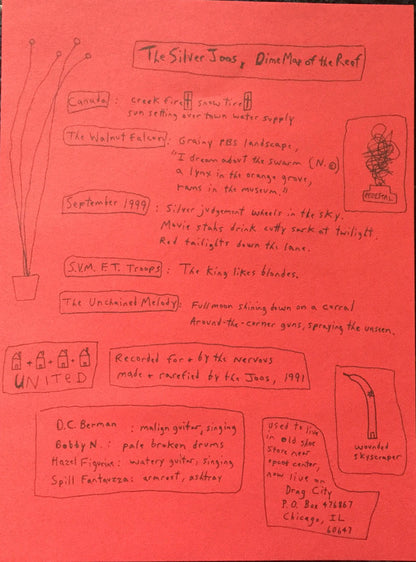 The Silver Joos, Dime Map of the Reef
Canada : creek fire snow tire
sun setting over town water supply
The Walnut Falcon: Grainy PBS landscape,
"I dream about the swarm (N.
a lynx in the orange grove,
rams in the museum."
PEDESTAL
September 1999 : Silver judgement wheels in the sky.
Movie stahs drink cutty sark at twilight
Red tailights down the lane.
S.V.M. F.T. Troops : The King likes blondes.
The Unchained Melody : Full moon shining down on a corral
Around-the-corner guns, spraying the unseen.
+ + +
UNITED
Recorded for + by the Nervous
made + rarefied by the Joos, 1991
D.C. Berman : malign guitar, singing
Bobby N. : pale broken drums
Hazel Figurine : watery guitar, singing
Spill Fantauzza : armrest, ashtray
used to live
in old shoe
store near
epcot center,
now live on
Drag City
P.O. Box 476867
Chicago, IL
60647
wounded
skyscraper